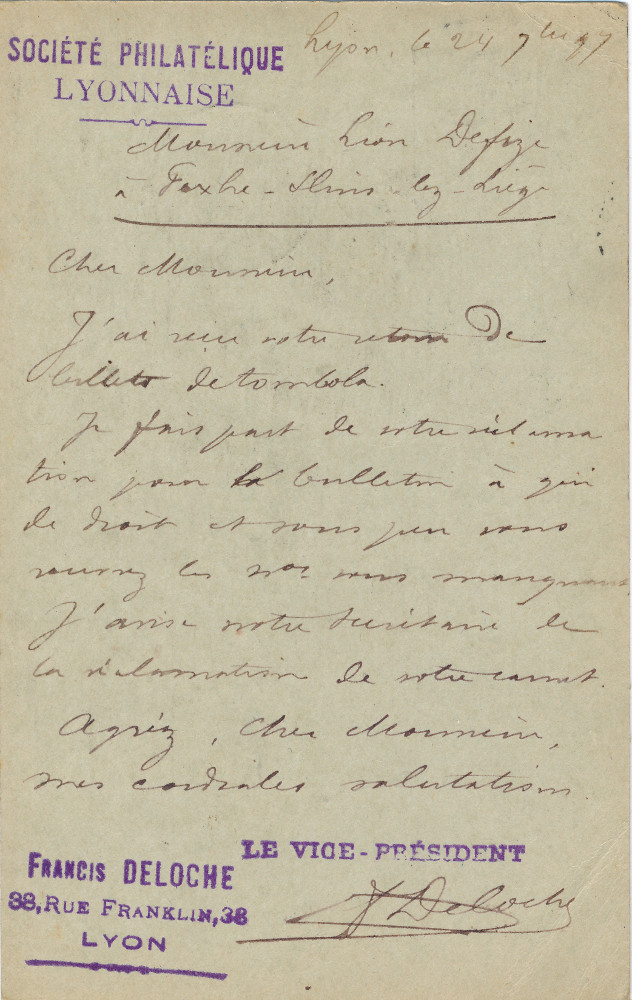 SOCIÉTÉ PHILATÉLIQUE
LYONNAISE
Lyon, le 24 7bre 97
Monsieur Léon Defize
à Fexhe-Slins-lez-Liège
Cher Monsieur,
J'ai reçu votre retour de
billets de tombola.
Je fais part de votre réclama
tion pour le bulletin à qui
de droit et sous peu vous
recevrez les nos vous manquant
J'avise notre Secrétaire de
la réclamation de votre carnet.
Agréez, Cher Monsieur,
mes cordiales salutations.
LE VICE-PRÉSIDENT
F Deloche
FRANCIS DELOCHE
38, RUE FRANKLIN, 38
LYON